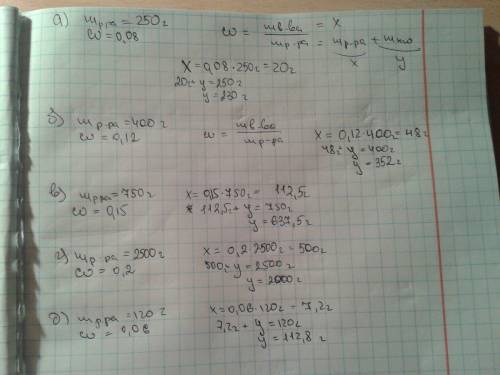 а) mр-ра = 250г
ω = 0,08
ω = mв-ва / mр-ра = x / mр-ра = mв-ва + mH₂O
x y
x = 0,08 · 250г = 20г
20г + y = 250г
y = 230г
б) mр-ра = 400г
ω = 0,12
ω = mв-ва / mр-ра
x = 0,12 · 400г = 48г
48г + y = 400г
y = 352г
в) mр-ра = 750г
ω = 0,15
x = 0,15 · 750г = 112,5г
112,5г + y = 750г
y = 637,5г
г) mр-ра = 2500г
ω = 0,2
x = 0,2 · 2500г = 500г
500г + y = 2500г
y = 2000г
д) mр-ра = 120г
ω = 0,06
x = 0,06 · 120г = 7,2г
7,2г + y = 120г
y = 112,8г